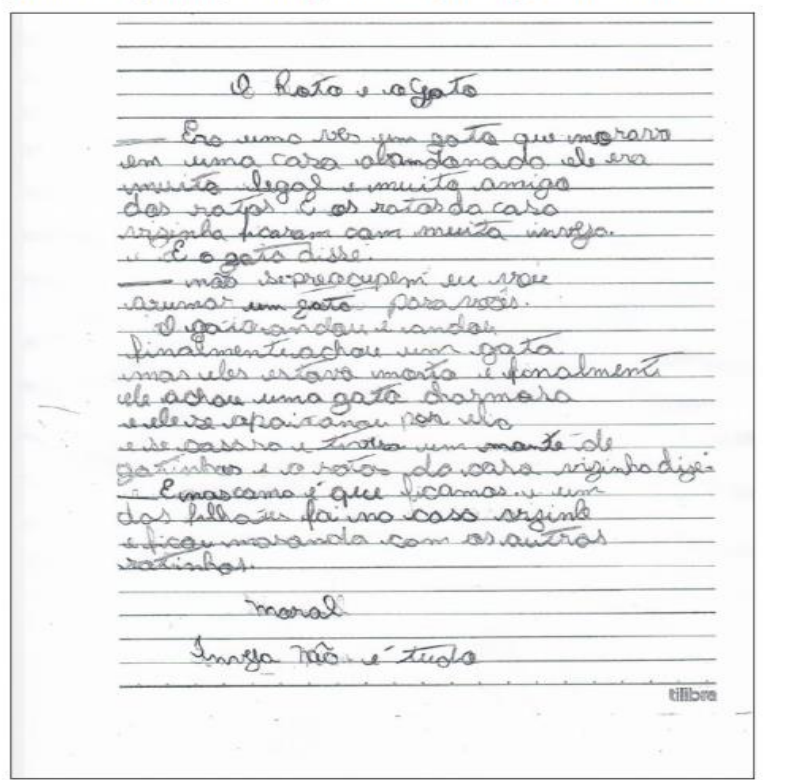 O Rato e o Gato
— Era uma vês um gato que morava
em uma casa abandonada ele era
muito legal e muito amigo
dos ratos. E os ratos da casa
vizinha ficaram com muita inveja.
E o gato disse.
— não se preocupem eu vou
arumar um gato para vocês.
O gato andou e andou
finalmente achou um gato
mas eles estava morto e finalmenti
ele achou uma gata charmosa
e ele se apaixonou por ela
e se casara e um monte de
gatinhos e o ratos da casa vizinha
— E nas como é que ficamos. e um
dos filhotes foi na casa vizinh
e ficou morando com os outros
ratinhos.
Moral
Inveja não é tudo
tilibra